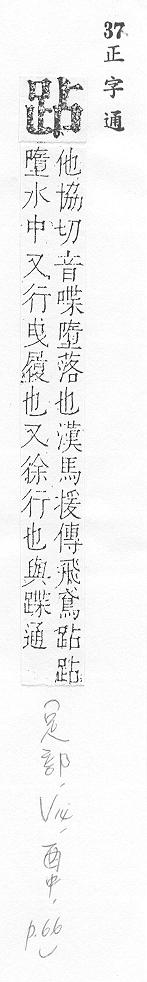 37 正字通
跕
他協切音喋墮落也漢馬援傳飛鳶跕跕
墮水中又行曳履也又徐行也與蹀通
(足部,
酉中,
p.66)